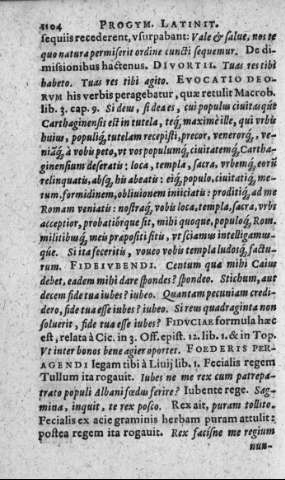 1104 PROGYM. LATINIT.
sequiis recederent, vsurpabant: Vale & salue, nos te
quo natura permiserit ordine cuncti sequemur. De di-
missionibus hactenus. DIVORTII. Tuas res tibi
habeto. Tuas res tibi agito. EVOCATIO DEO-
RVM his verbis peragebatur, quæ retulit Macrob.
lib. 3. cap. 9. Si deus, si dea es, cui populus ciuitasque
Carthaginensis est in tutela, teq́, maximè is, qui vrbis
huius, populiq́, tutelam recepisti, precor, venerorq́, ve-
niáq́, à vobis peto, vt vos populumq́, ciuitatemq́, Cartha-
ginensium deseratis: loca, templa, sacra, vrbemq́, eorũ
relinquatis, absq́, his abeatis: eiq́, populo, ciuitatiq́, me-
tum, formidinem, obliuionem iniiciatis: proditiq́, ad me
Romam veniatis: nostraq́, vobis loca, templa, sacra, vrbs
acceptior, probatiórque sit, mihi quoque, populoq́, Rom.
militibusq́, meis præpositi sitis, vt sciamus intelligamus-
que. Si ita feceritis, voueo vobis templa ludosq́, factu-
rum. FIDEIVBENDI. Centum quæ mihi Caius
debet, eadem mihi dare spondes? spondeo. Stichum, aut
decem fide tua iubes? iubeo. Quantam pecuniam credi-
dero, fide tua esse iubes? iubeo. Si reus quadraginta non
soluerit, fide tua esse iubes? FIDVCIAE formula hæc
est, relata à Cic. in 3. Off. epist. 12. lib. 1. & in Top.
Vt inter bonos bene agier oportet. FOEDERIS PER-
AGENDI legam tibi à Liuij lib. 1. Fecialis regem
Tullum ita rogauit. Iubes ne me rex cum patre pa-
trato populi Albani fœdus ferire? Iubente rege. Sag-
mina, inquit, te rex posco. Rex ait, puram tollito.
Fecialis ex acie graminis herbam puram attulit:
postea regem ita rogauit. Rex facisne me regium
nun-